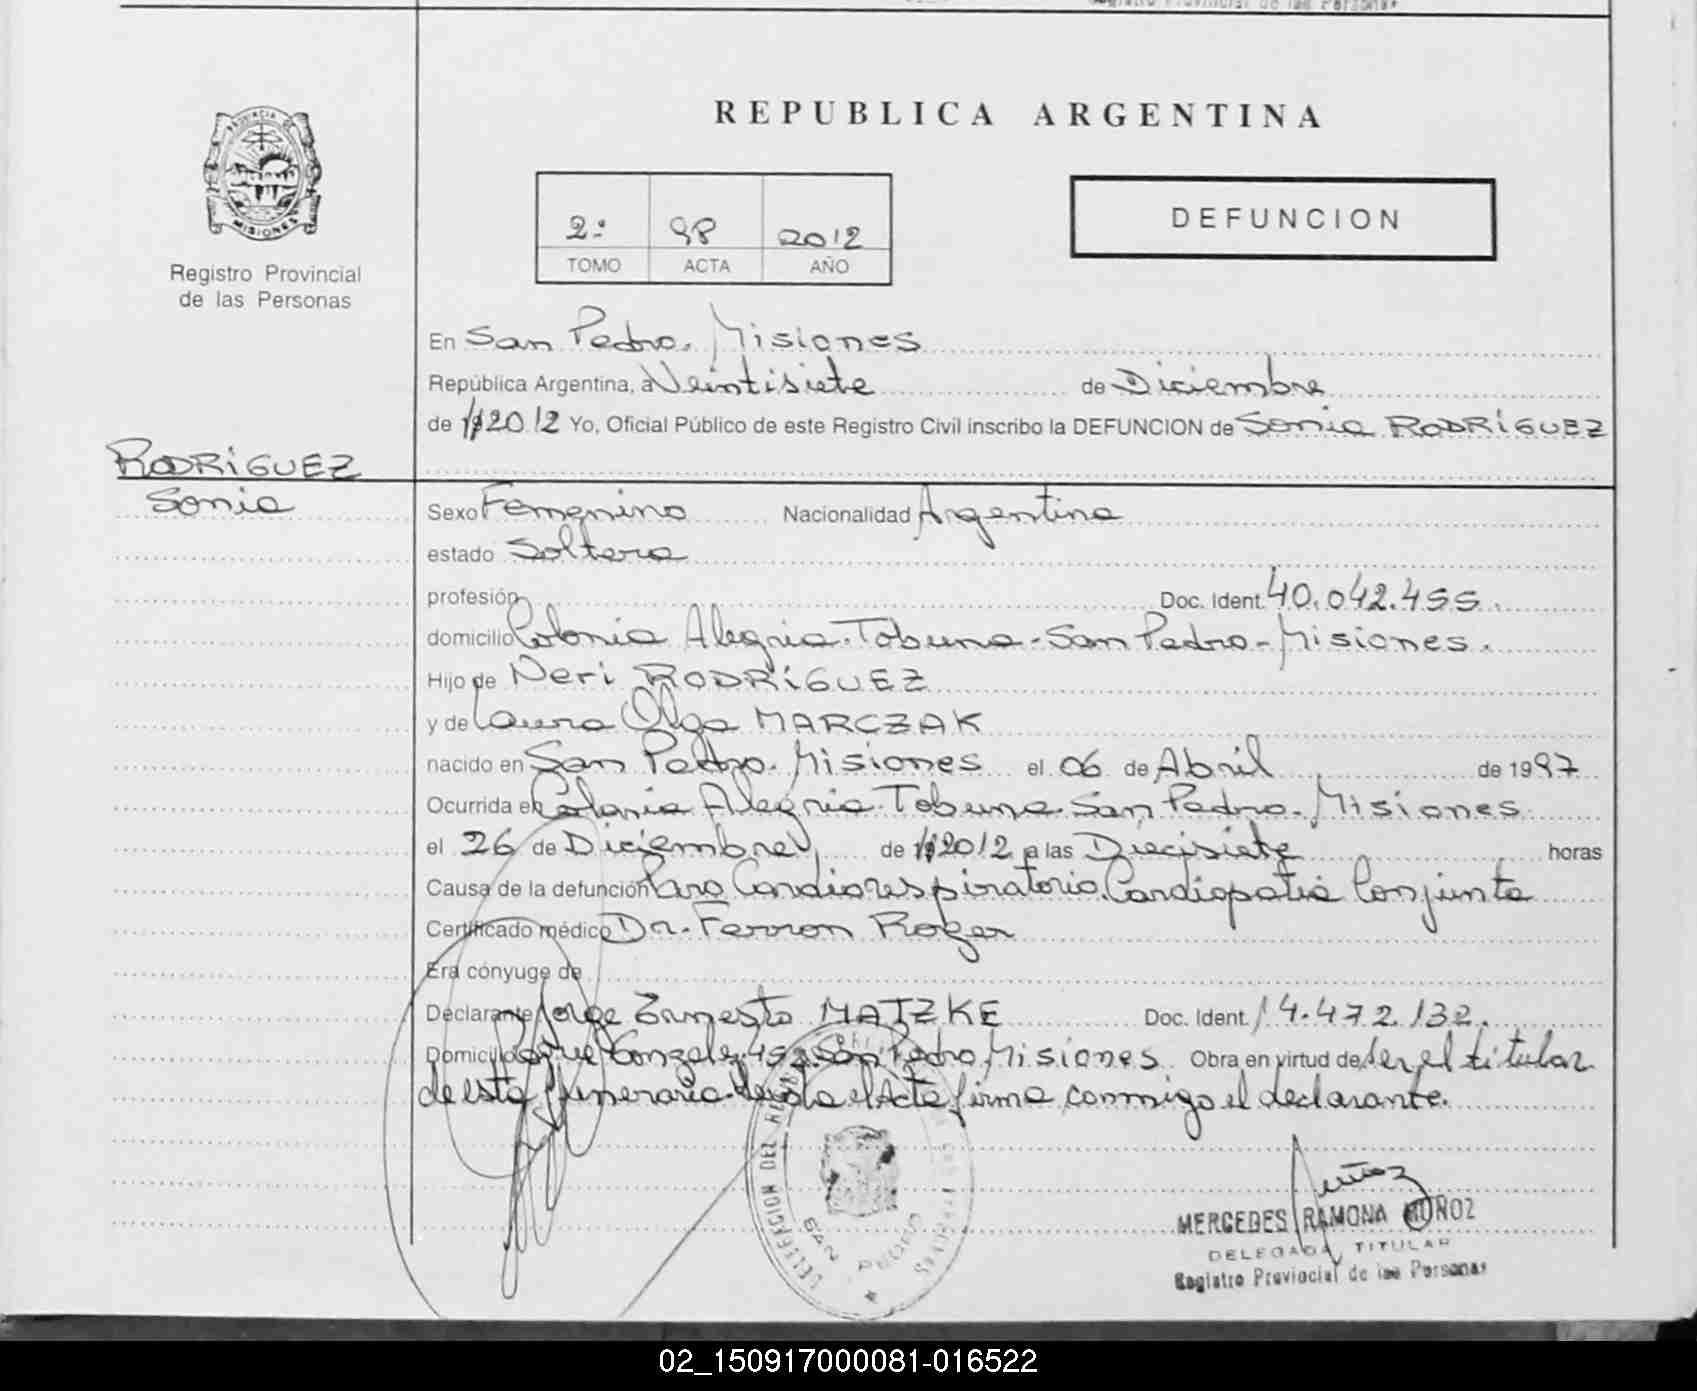 REPUBLICA ARGENTINA
PROVINCIA DE
MISIONES
Registro Provincial
de las Personas
2º 98 2012
TOMO ACTA AÑO
DEFUNCION
En San Pedro. Misiones
República Argentina, a Veintisiete de Diciembre
de 19 2012 Yo, Oficial Público de este Registro Civil inscribo la DEFUNCION de Sonia RODRÍGUEZ
RODRÍGUEZ
Sonia
Sexo Femenino Nacionalidad Argentina
estado Soltera
profesión Doc. Ident. 40.042.455.
domicilio Colonia Alegria-Tobuna-San Pedro-Misiones.
Hijo de Neri RODRÍGUEZ
y de Laura Olga MARCZAK
nacido en San Pedro. Misiones el 06 de Abril de 1997
Ocurrida en Colonia Alegria. Tobuna. San Pedro. Misiones
el 26 de Diciembre de 19 2012 a las Diecisiete horas
Causa de la defunción Paro Cardiorespiratorio. Cardiopatia Conjunta
Certificado médico Dr. Ferron Roger
Era cónyuge de
Declarante Jorge Ernesto MATZKE Doc. Ident. 14.472.132.
Domicilio Gonzalez San Pedro. Misiones. Obra en virtud de Ser el titular
de esta funeraria. el Acta firma conmigo el declarante.
DELEGACION DEL
SAN PEDRO
Muñoz
MERCEDES RAMONA MUÑOZ
DELEGADA TITULAR
Registro Provincial de las Personas
02_150917000081-016522